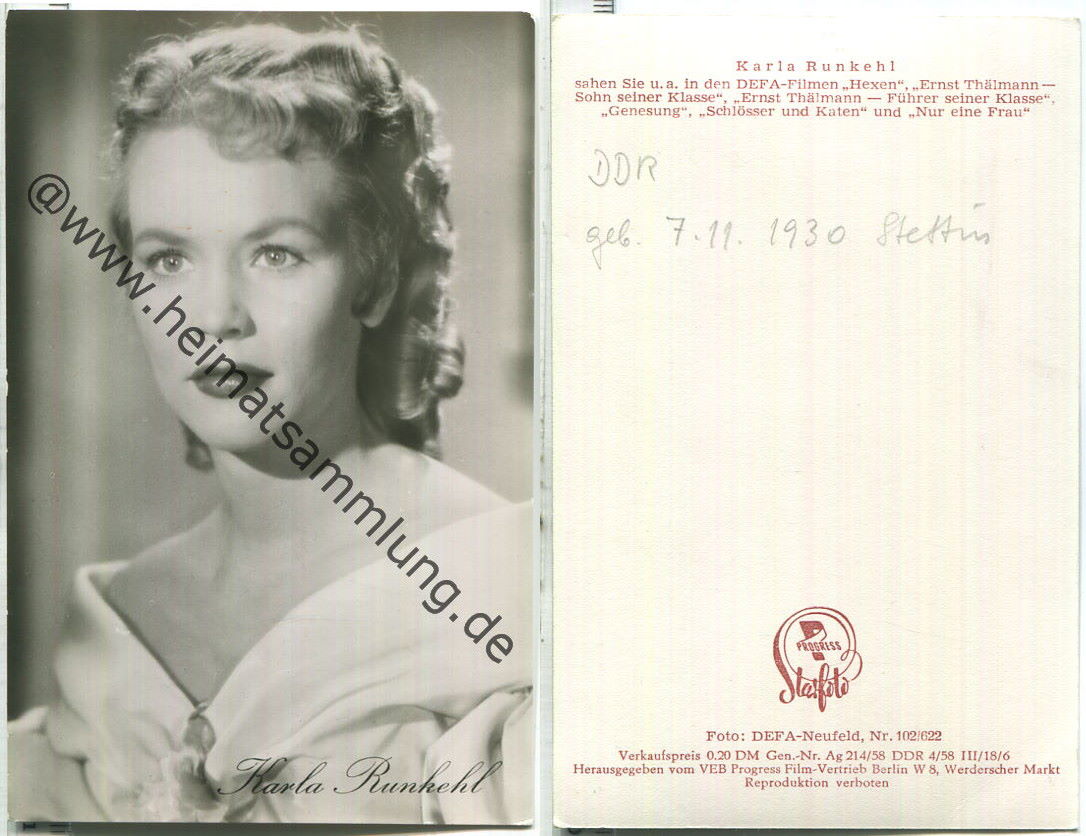 @www.heimatsammlung.de
Karla Runkehl
Karla Runkehl
sahen Sie u.a. in den DEFA-Filmen „Hexen“, „Ernst Thälmann —
Sohn seiner Klasse“, „Ernst Thälmann — Führer seiner Klasse“,
„Genesung“, „Schlösser und Katen“ und „Nur eine Frau“
DDR
geb. 7.11. 1930 Stettin
PROGRESS
Starfoto
Foto: DEFA-Neufeld, Nr. 102/622
Verkaufspreis 0.20 DM Gen.-Nr. Ag 214/58 DDR 4/58 III/18/6
Herausgegeben vom VEB Progress Film-Vertrieb Berlin W 8, Werderscher Markt
Reproduktion verboten